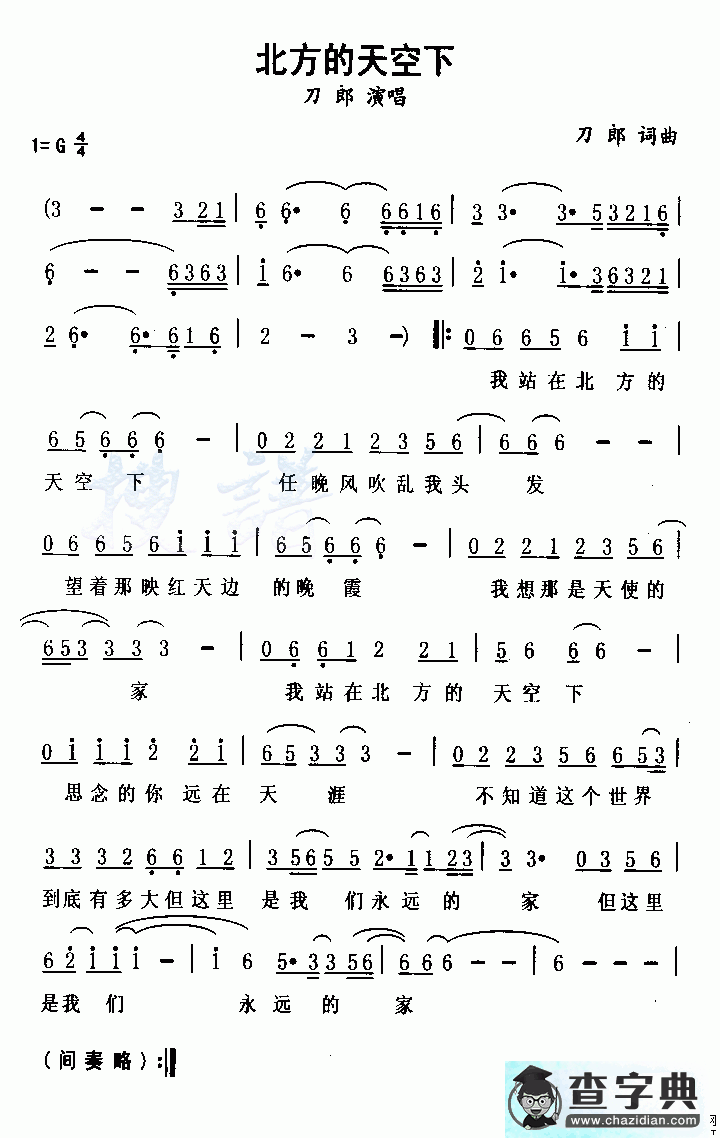 北方的天空下
刀 郎 演唱
1=G 4/4
刀 郎 词曲
(3 - - 3 21 | 6 6· 6 6616 | 3 3· 3·5 3216 |
6 - - 6363 | i 6· 6 6363 | 2 i· i·3 6321 |
2 6· 6·6 16 | 2 - 3 -) ‖: 0 6 6 5 6 i i |
我站在北 方的
6 5 6 6 6 - | 0 2 2 1 2 2 3 5 6 | 6 6 6 - - |
天空 下 任晚风吹乱我头 发
0 6 6 5 6 i i i | 6 5 6 6 6 - | 0 2 2 1 2 2 3 5 6 |
望着那映红天边 的晚 霞 我想那是天使的
6 5 3 3 3 3 - | 0 6 6 1 2 2 2 1 | 5 6 6 6 - |
家 我站在北 方的 天空下
0 i i i 2 2 i | 6 5 3 3 3 - | 0 2 2 3 5 6 6 53 |
思念的你 远在 天 涯 不知道这个世界
3 3 3 2 6 6 1 2 | 3 56 5 5 2· 1 1 23 | 3 3· 0 3 5 6 |
到底有多大但这里 是我 们永远的 家 但这里
6 2 i i i - | i 6 5· 3 3 56 | 6 6 6 - - | 6 - - - |
是我们 永远的 家
(间奏略) :‖
查字典
www.chazidian.com